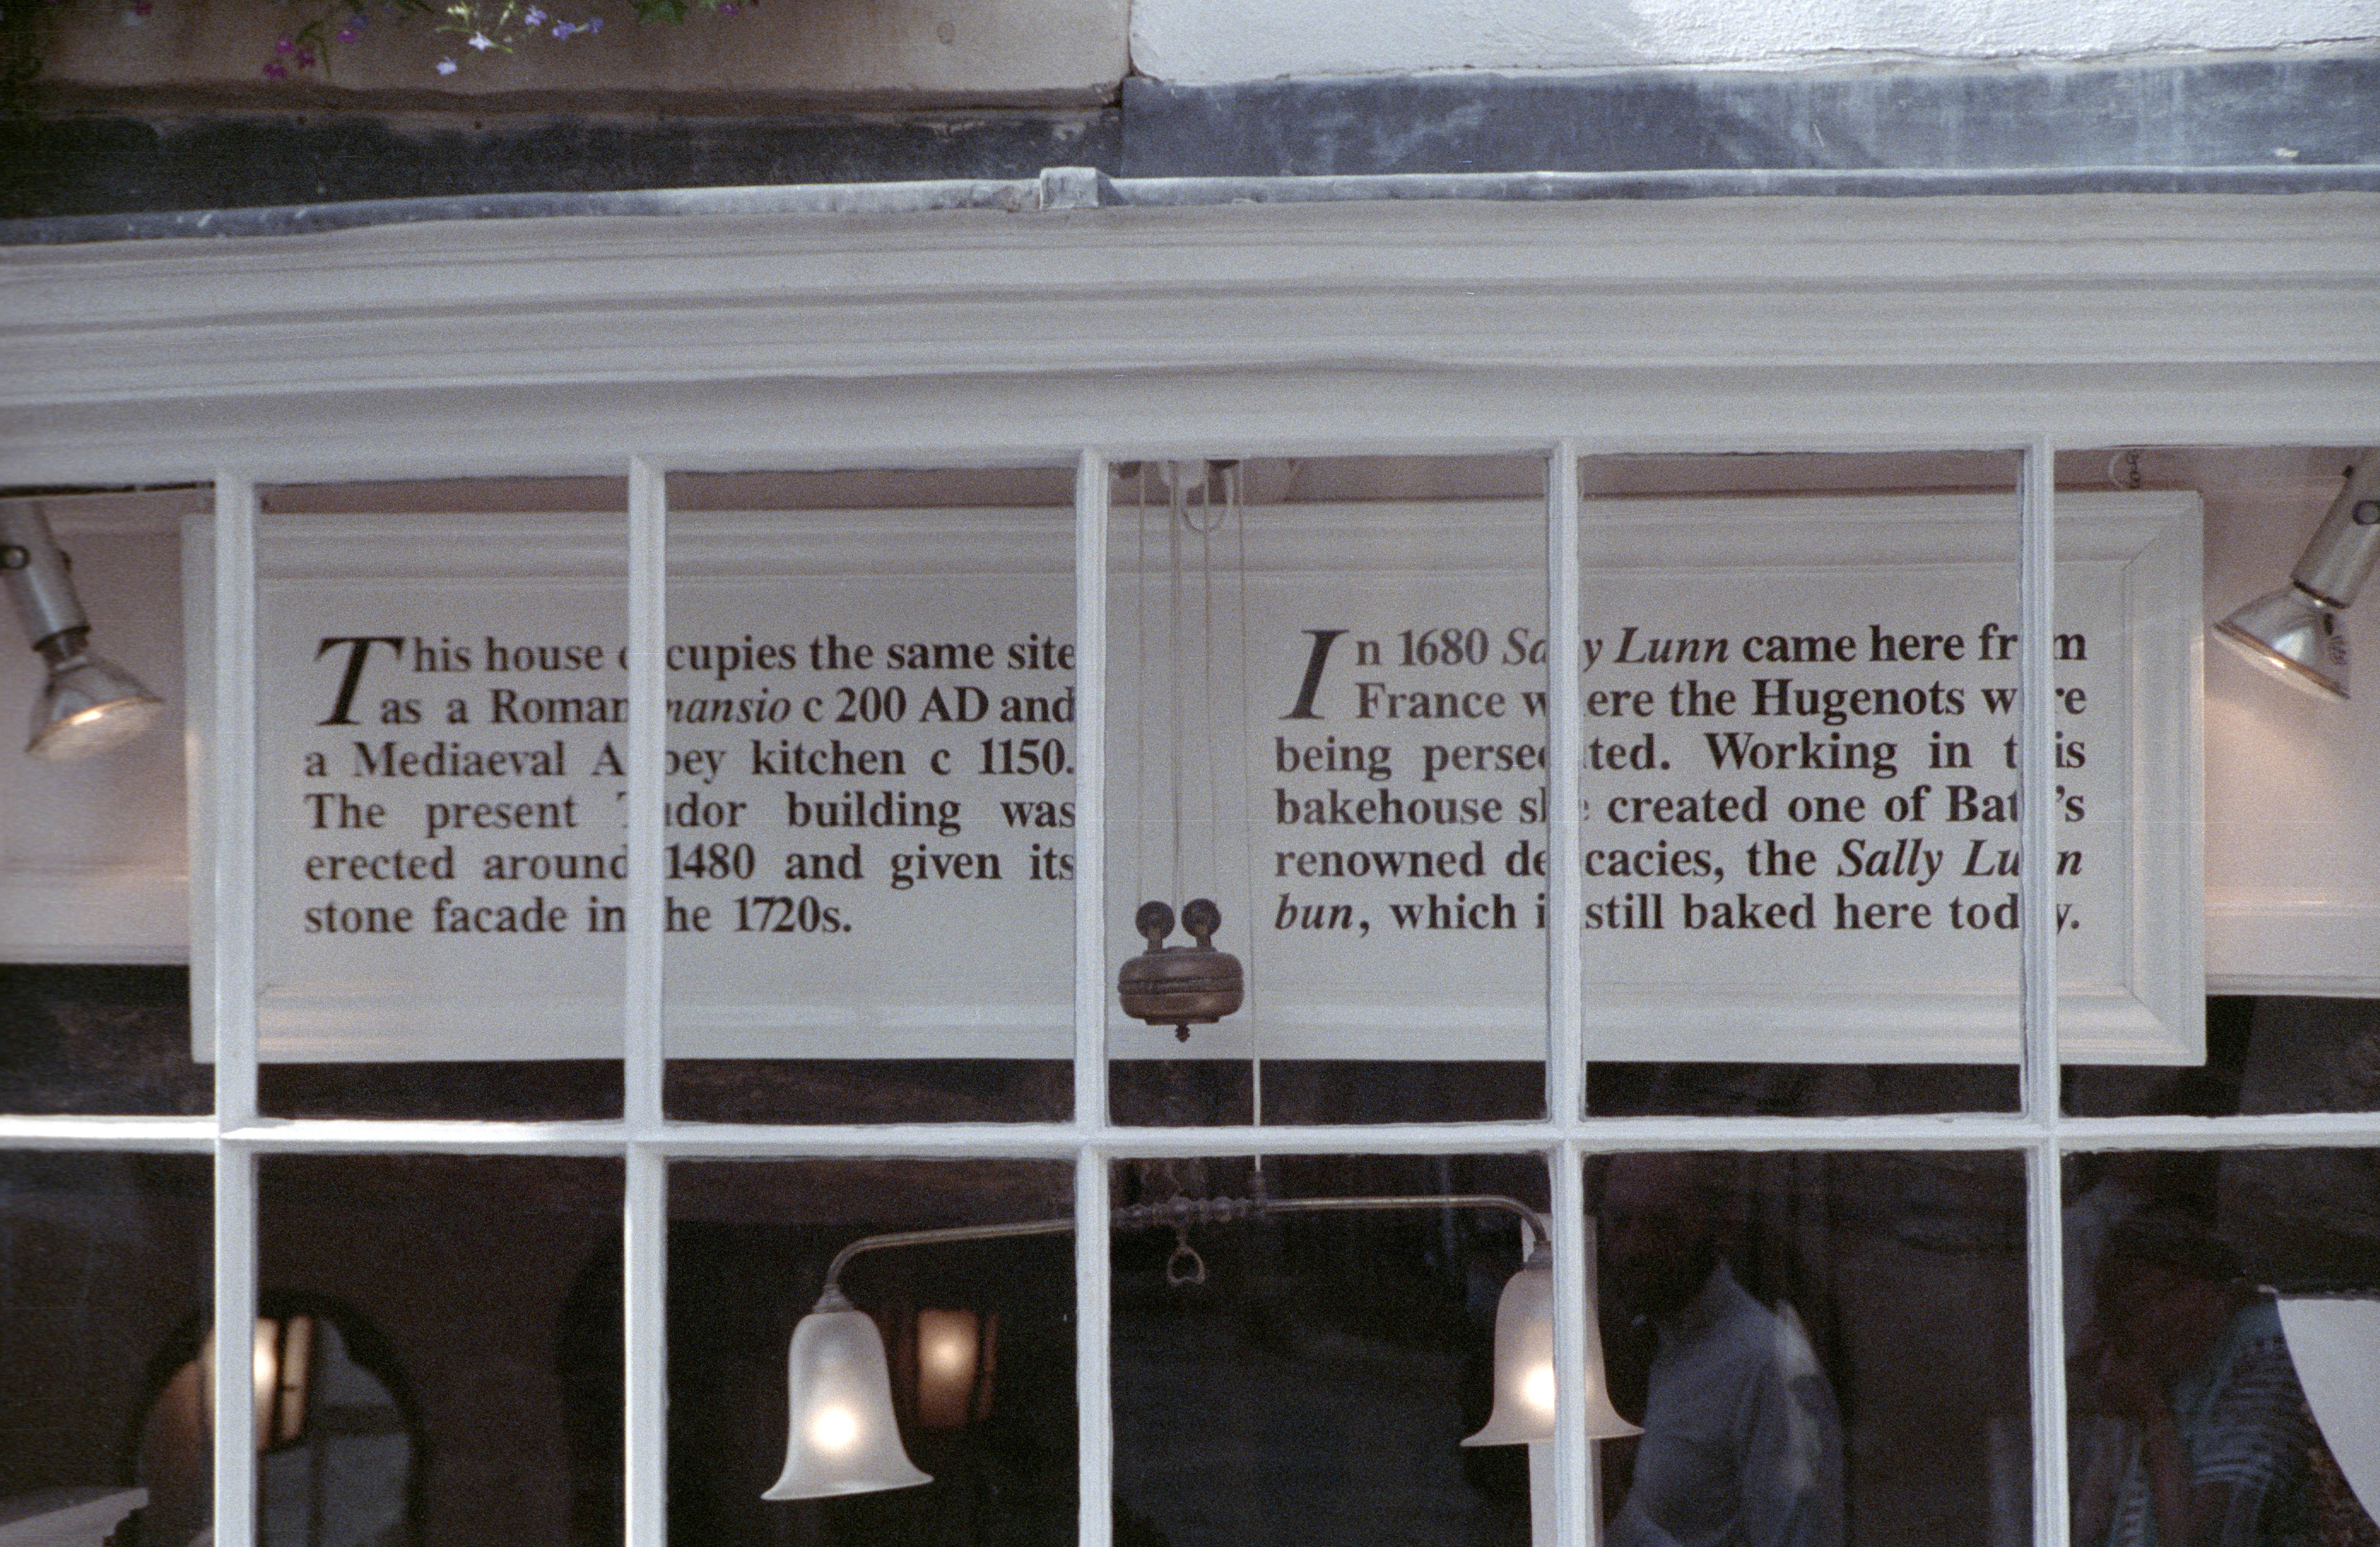 This house occupies the same site
as a Roman mansio c 200 AD and
a Mediaeval Abbey kitchen c 1150.
The present Tudor building was
erected around 1480 and given its
stone facade in the 1720s.
In 1680 Sally Lunn came here from
France where the Hugenots were
being persecuted. Working in this
bakehouse she created one of Bath's
renowned delicacies, the Sally Lunn
bun, which is still baked here today.